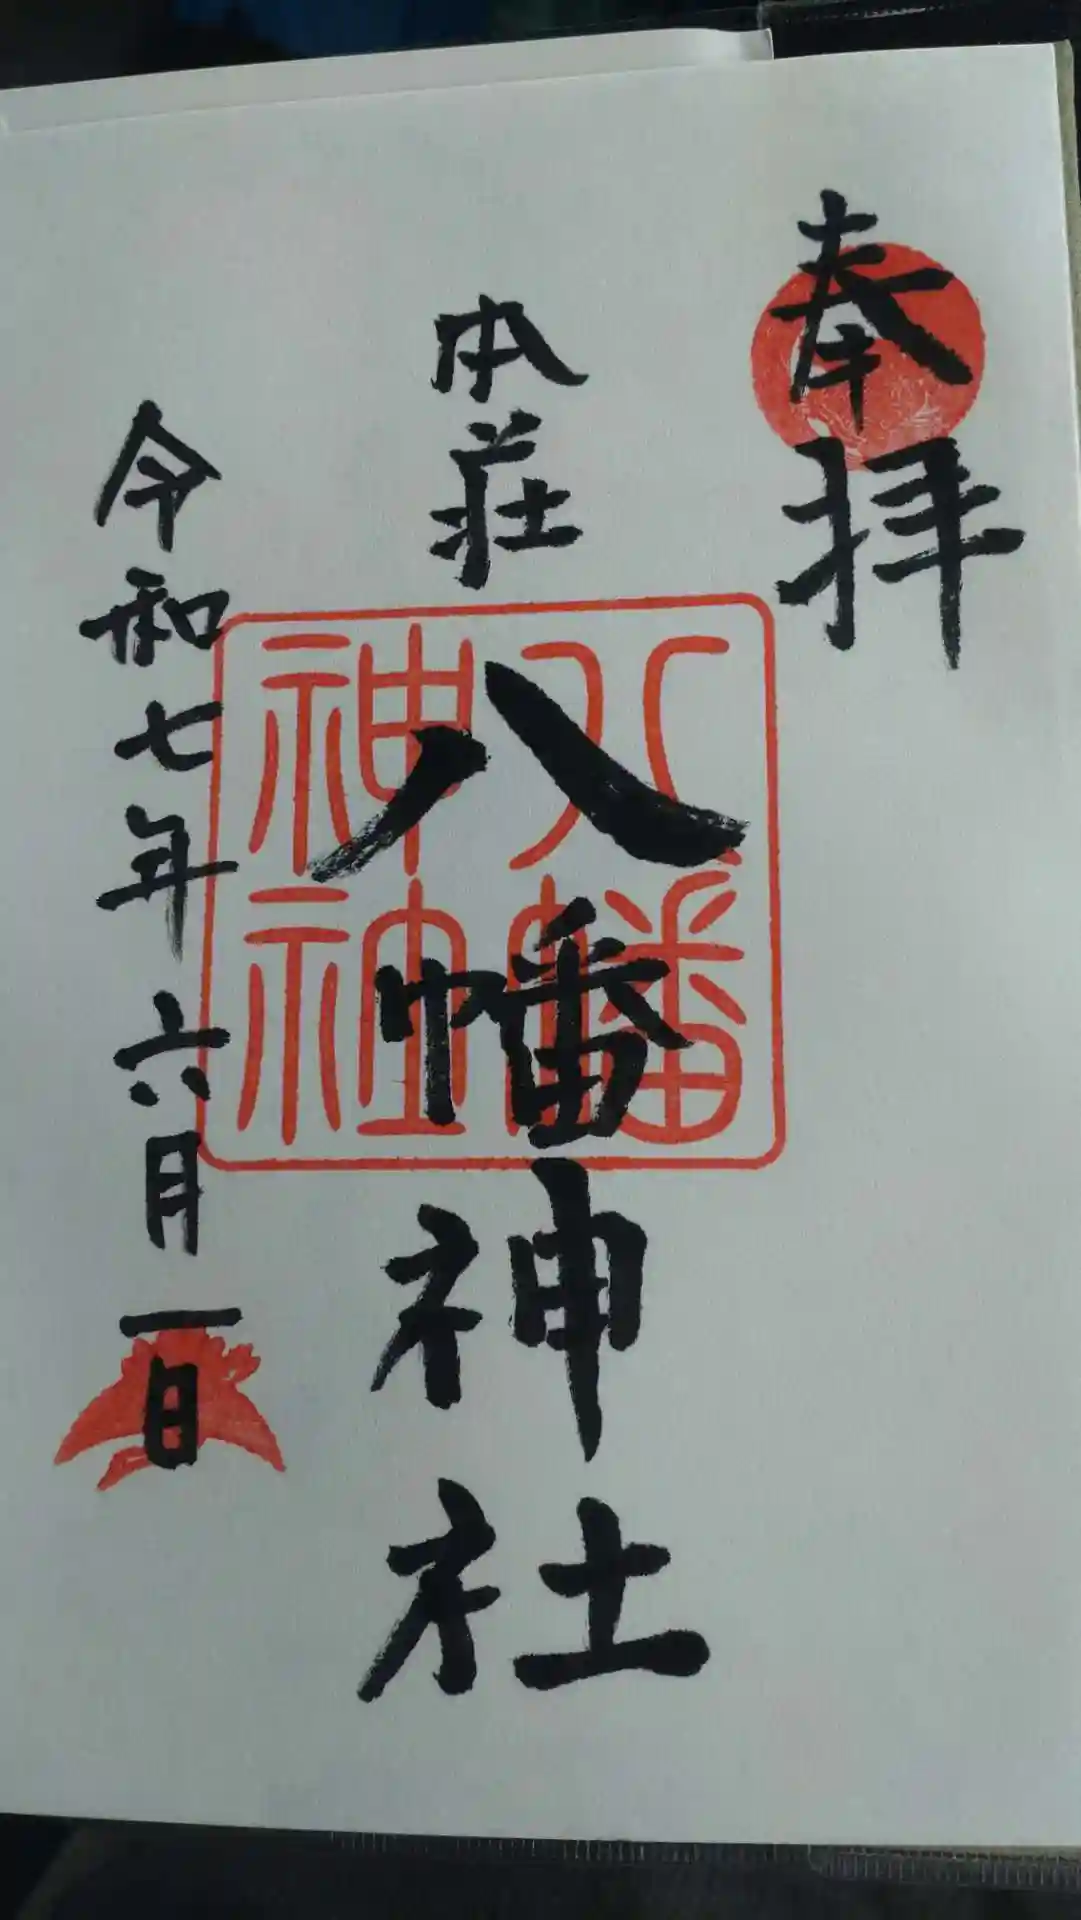 奉拝
本荘
八幡神社
八幡神社
令和七年六月一日